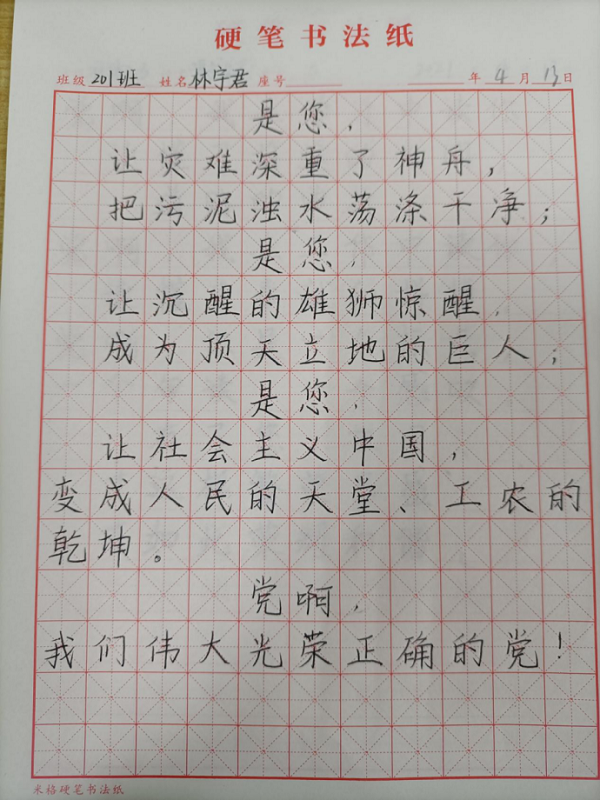 硬笔书法纸
班级 201班 姓名 林宇君 座号 年 4 月 13 日
是您，
让灾难深重了神舟，
把污泥浊水荡涤干净；
是您，
让沉醒的雄狮惊醒，
成为顶天立地的巨人；
是您，
让社会主义中国，
变成人民的天堂、工农的
乾坤。
党啊，
我们伟大光荣正确的党！
米格硬笔书法纸